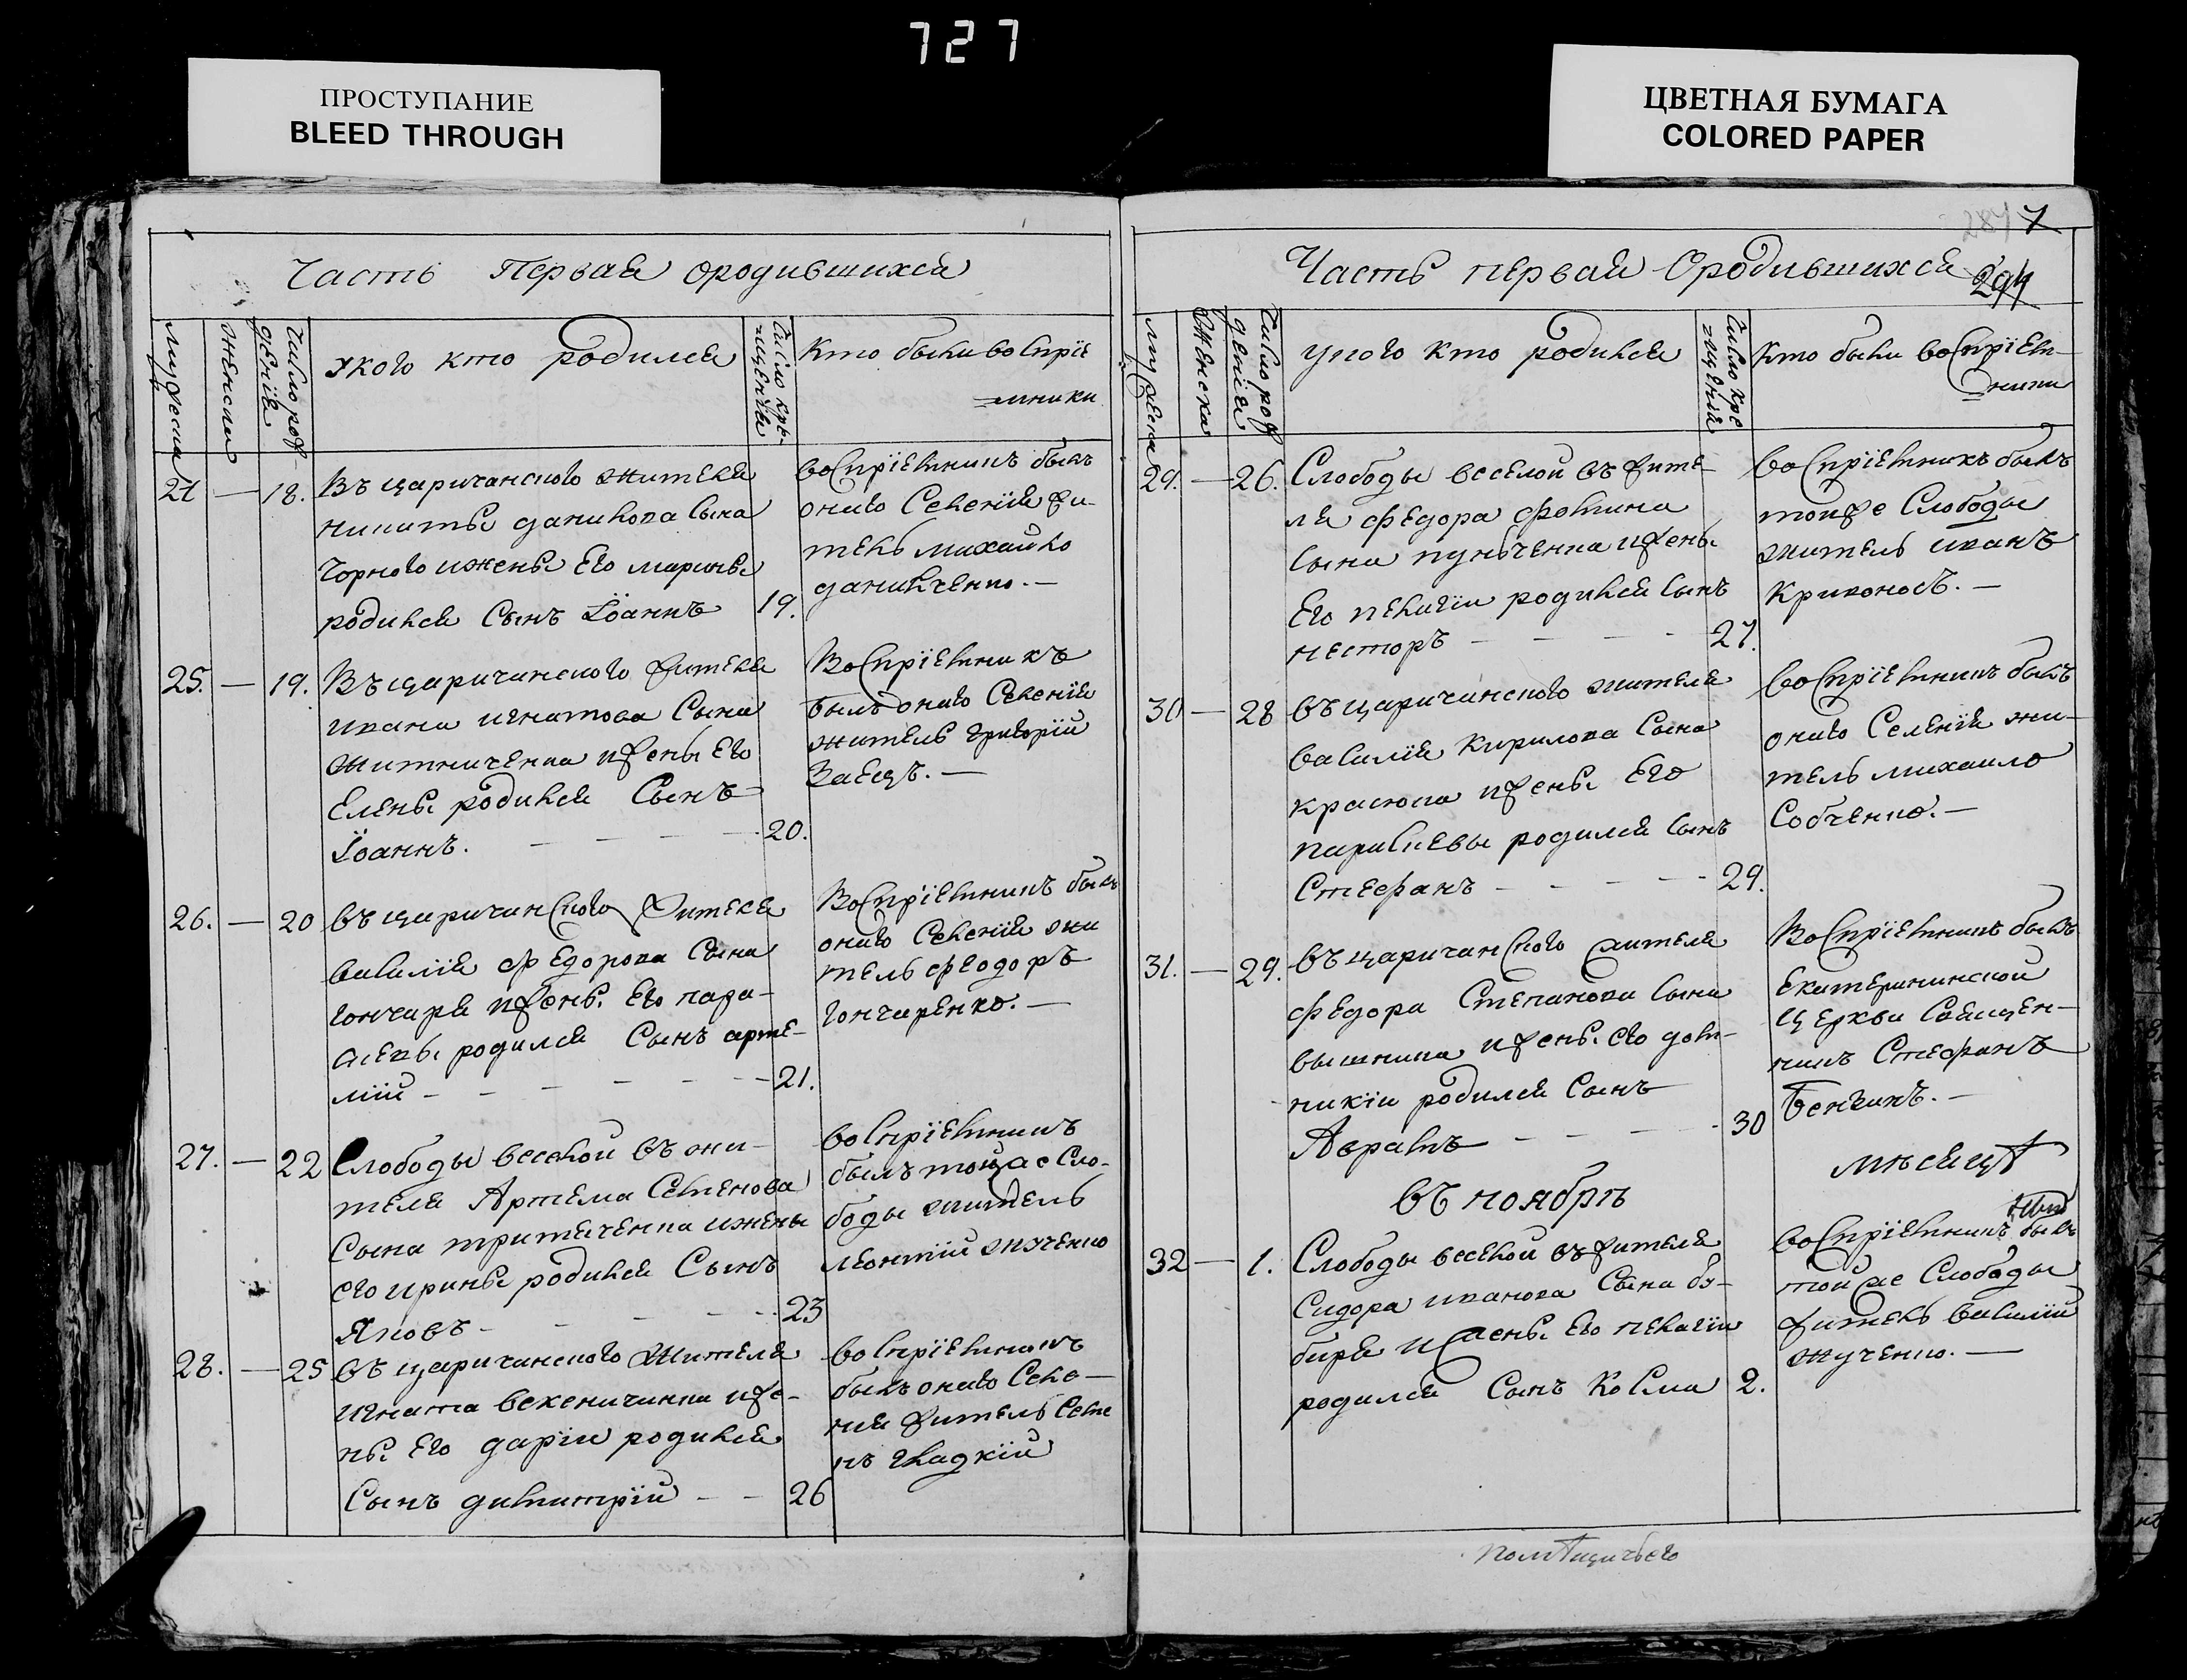 727
ПРОСТУПАНИЕ
BLEED THROUGH
ЦВЕТНАЯ БУМАГА
COLORED PAPER
Часть Первая ородившихся
мужеска
женска
Число рож
денїя
укого кто родился
Число кре
щенїя
Кто были воспрїе
мники
24 — 18. Въ царичанского жителя
никиты данилова сына
Чорного ижены Его марины
родился Сынъ Їоаннъ 19.
воспрїемникъ былъ
оного Селенїя жи-
тель михайло
данилченко. —
25. — 19. Въ царичанского жителя
ивана игнатова Сына
житниченка ижены Его
Елены родился Сынъ
Їоаннъ. — — — 20.
Воспрїемникъ
былъ оного Селенїя
житель григорїй
Заецъ. —
26. — 20 въ царичанского жителя
василїя федорова Сына
гончаря ижены Его пара-
скевы родился Сынъ арте-
мїй — — — — 21.
Воспрїемникъ былъ
оного Селенїя жи
тель феодоръ
гончаренко. —
27. — 22 Слободы веселой въ жи-
теля Артема Семенова
Сына ижены
его ирины родился Сынъ
Яковъ — — — 23
воспрїемникъ
былъ тойже Сло-
боды житель
леонтїй жученко
28. — 25 въ царичанского жителя
игната величинка иже-
ны Его дарїи родился
Сынъ димитрїй — — 26
воспрїемникъ
былъ оного Селе-
нїя житель Семе
нъ гладкїй
287 7
Часть первая Ородившихся
294
мужеска
женска
Число рож
денїя
укого кто родился
Число кре
щенїя
Кто были воспрїем-
ники
29. — 26. Слободы веселой въ жите-
ля федора фомина
сына ижены
Его пелагїи родился сынъ
несторъ — — — 27.
воспрїемникъ былъ
тойже Слободы
житель иванъ
кривоносъ. —
30 — 28 въ царичанского жителя
василїя кирилова Сына
красюка ижены Его
параскевы родился сынъ
Стефанъ — — — 29.
воспрїемникъ былъ
оного Селенїя жи-
тель михаило
Собченко. —
31. — 29. въ царичанского жителя
федора Степанова сына
вышника ижены его дом-
никїи родился Сынъ
Аврамъ — — — 30
Воспрїемникъ былъ
Екатерининской
Церкви Священ-
никъ Стефанъ
въ ноябрѣ
мѣсяцѣ
32 — 1. Слободы веселой въ жителя
Сидора иванова Сына бу-
биря ижены Его пелагїи
родился Сынъ Косма 2.
воспрїемникъ былъ
той же Слободы
житель василїй
жученко. —